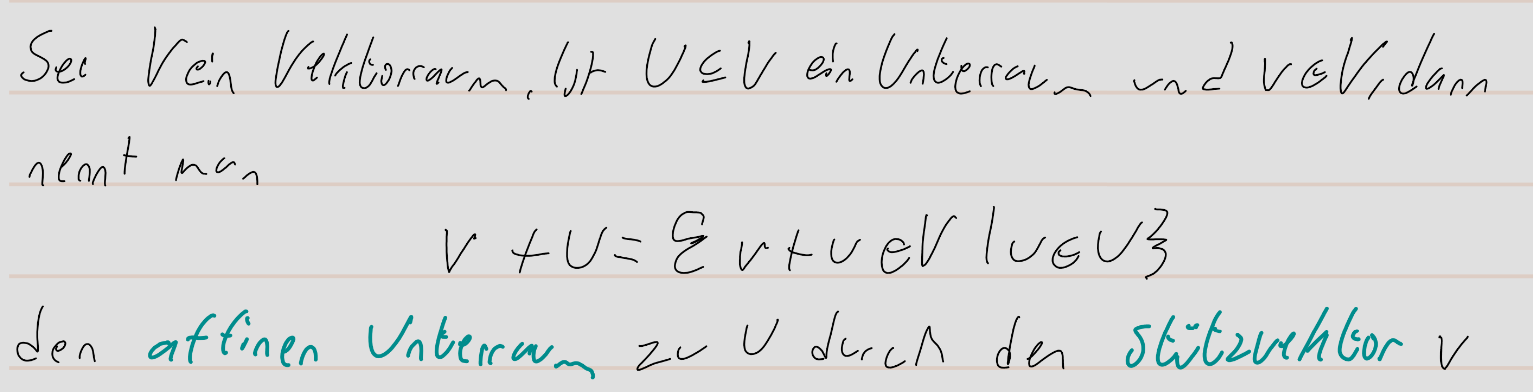 Sei V ein Vektorraum. Ist U ⊆ V ein Unterraum und v ∈ V, dann
nennt man
v + U = { v + u ∈ V | u ∈ U }
den affinen Unterraum zu U durch den Stützvektor v